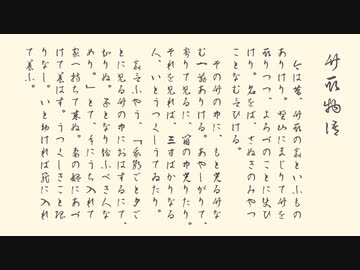 竹取物語
今は昔、竹取の翁といふもの
ありけり。野山にまじりて竹を
取りつつ、よろづのことに使ひ
けり。名をば、さぬきのみやつ
ことなむいひける。
その竹の中に、もと光る竹な
む一筋ありける。あやしがりて、
寄りて見るに、筒の中光りたり。
それを見れば、三寸ばかりなる
人、いとうつくしうてゐたり。
翁言ふやう、「我朝ごと夕ご
とに見る竹の中におはするにて、
知りぬ。子となり給ふべき人な
めり。」とて、手にうち入れて
家へ持ちて来ぬ。妻の嫗にあづ
けて養はす。うつくしきこと限
りなし。いと幼ければ籠に入れ
て養ふ。